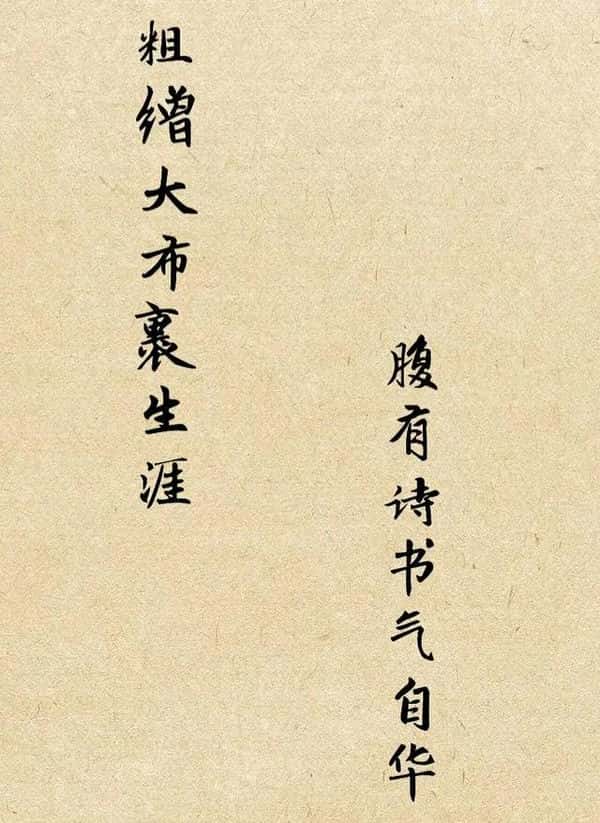 粗缯大布裹生涯
腹有诗书气自华